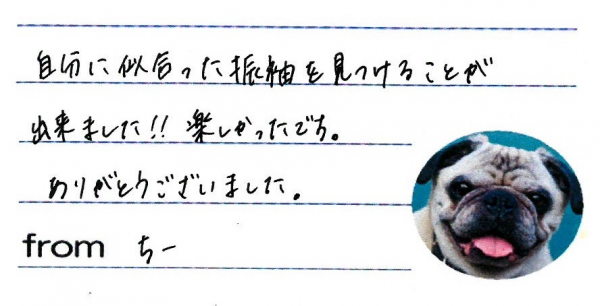 自分に似合った振袖を見つけることが
出来ました!! 楽しかったです。
ありがとうございました。
from ちー